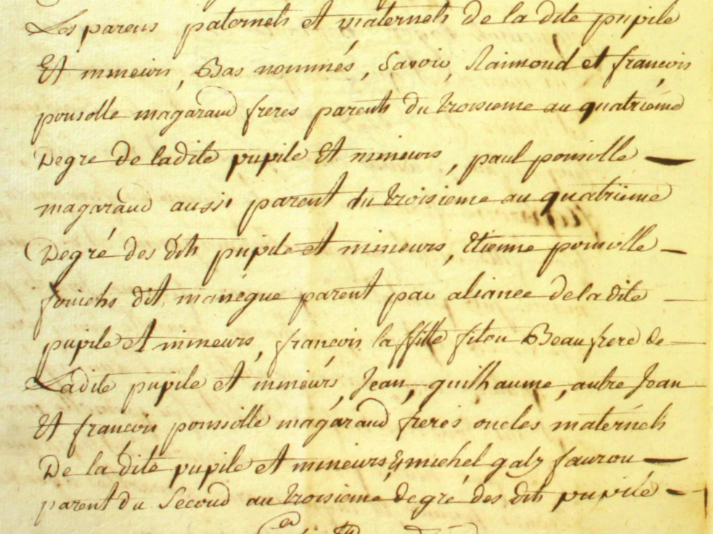 Les parens paternels et maternels de la dite pupile
Et mineurs, Bas nommés, Savoir, Raimond et francois
ponsolle magaraud freres parents du troisieme au quatriéme
Degre de ladite pupile Et mineurs, paul ponsolle
magaraud aussi parent du troisieme au quatrieme
Degré des dits pupile et mineurs, Etienne ponsolle
dit manégue parent par aliance de la dite
pupile Et mineurs, francois la ffitte fitou Beau frere de
Ladite pupile et mineurs, Jean, guilhaume, autre Jean
Et francois ponsolle magaraud freres oncles maternels
De la dite pupile et mineurs & michel galy faurou
parent du Second au troisieme degré des dits pupile